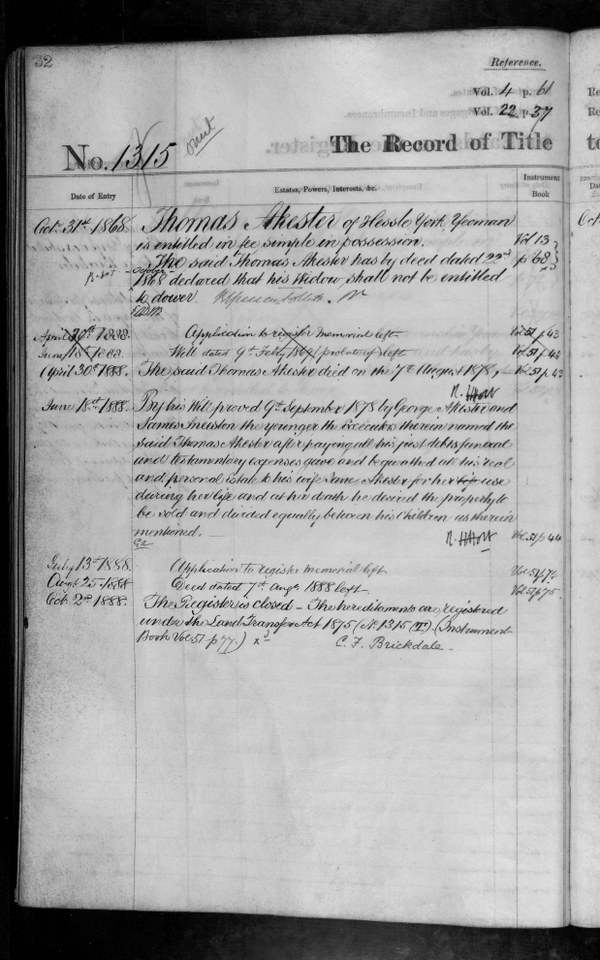 32
Reference.
Vol. 4 p. 61
Vol. 22 p. 37
The Record of Title
No. 1315
Date of Entry
Estates, Powers, Interests, &c.
Instrument
Book
Oct. 31st 1868 Thomas Akester of Hessle York, Yeoman
is entitled in fee simple in possession. Vol 13
The said Thomas Akester has by deed dated 22nd p 68
October
1868 declared that his Widow shall not be entitled
to dower.
April 30th 1888. Application to register memorial left Vol 51 p 43
June 18th 1888. Will dated 9th Feby (probate of) left Vol 51 p 44
April 30th 1888. The said Thomas Akester died on the 7th August 1878, Vol 51 p 43
R. Holt
June 18th 1888. By his Will proved 9th September 1878 by George Akester and
James Ineeson the younger the Executors therein named the
said Thomas Akester after paying all his just debts funeral
and testamentary expenses gave and bequeathed all his real
and personal Estate to his wife Jane Akester for her use
during her life and at her death he desired the property to
be sold and divided equally between his Children as therein
mentioned. R. Holt Vol. 51 p 44
July 13th 1888. Application to register memorial left Vol 51 p 74
Augt 25. 1888 Deed dated 7th Augt 1888 left Vol. 51 p 75
Oct 2nd 1888. The Register is closed – The hereditaments are registered
under the Land Transfer Act 1875 (No. 1315 (II)) (Instrument
Book Vol 51 p 77.)
C. F. Brickdale